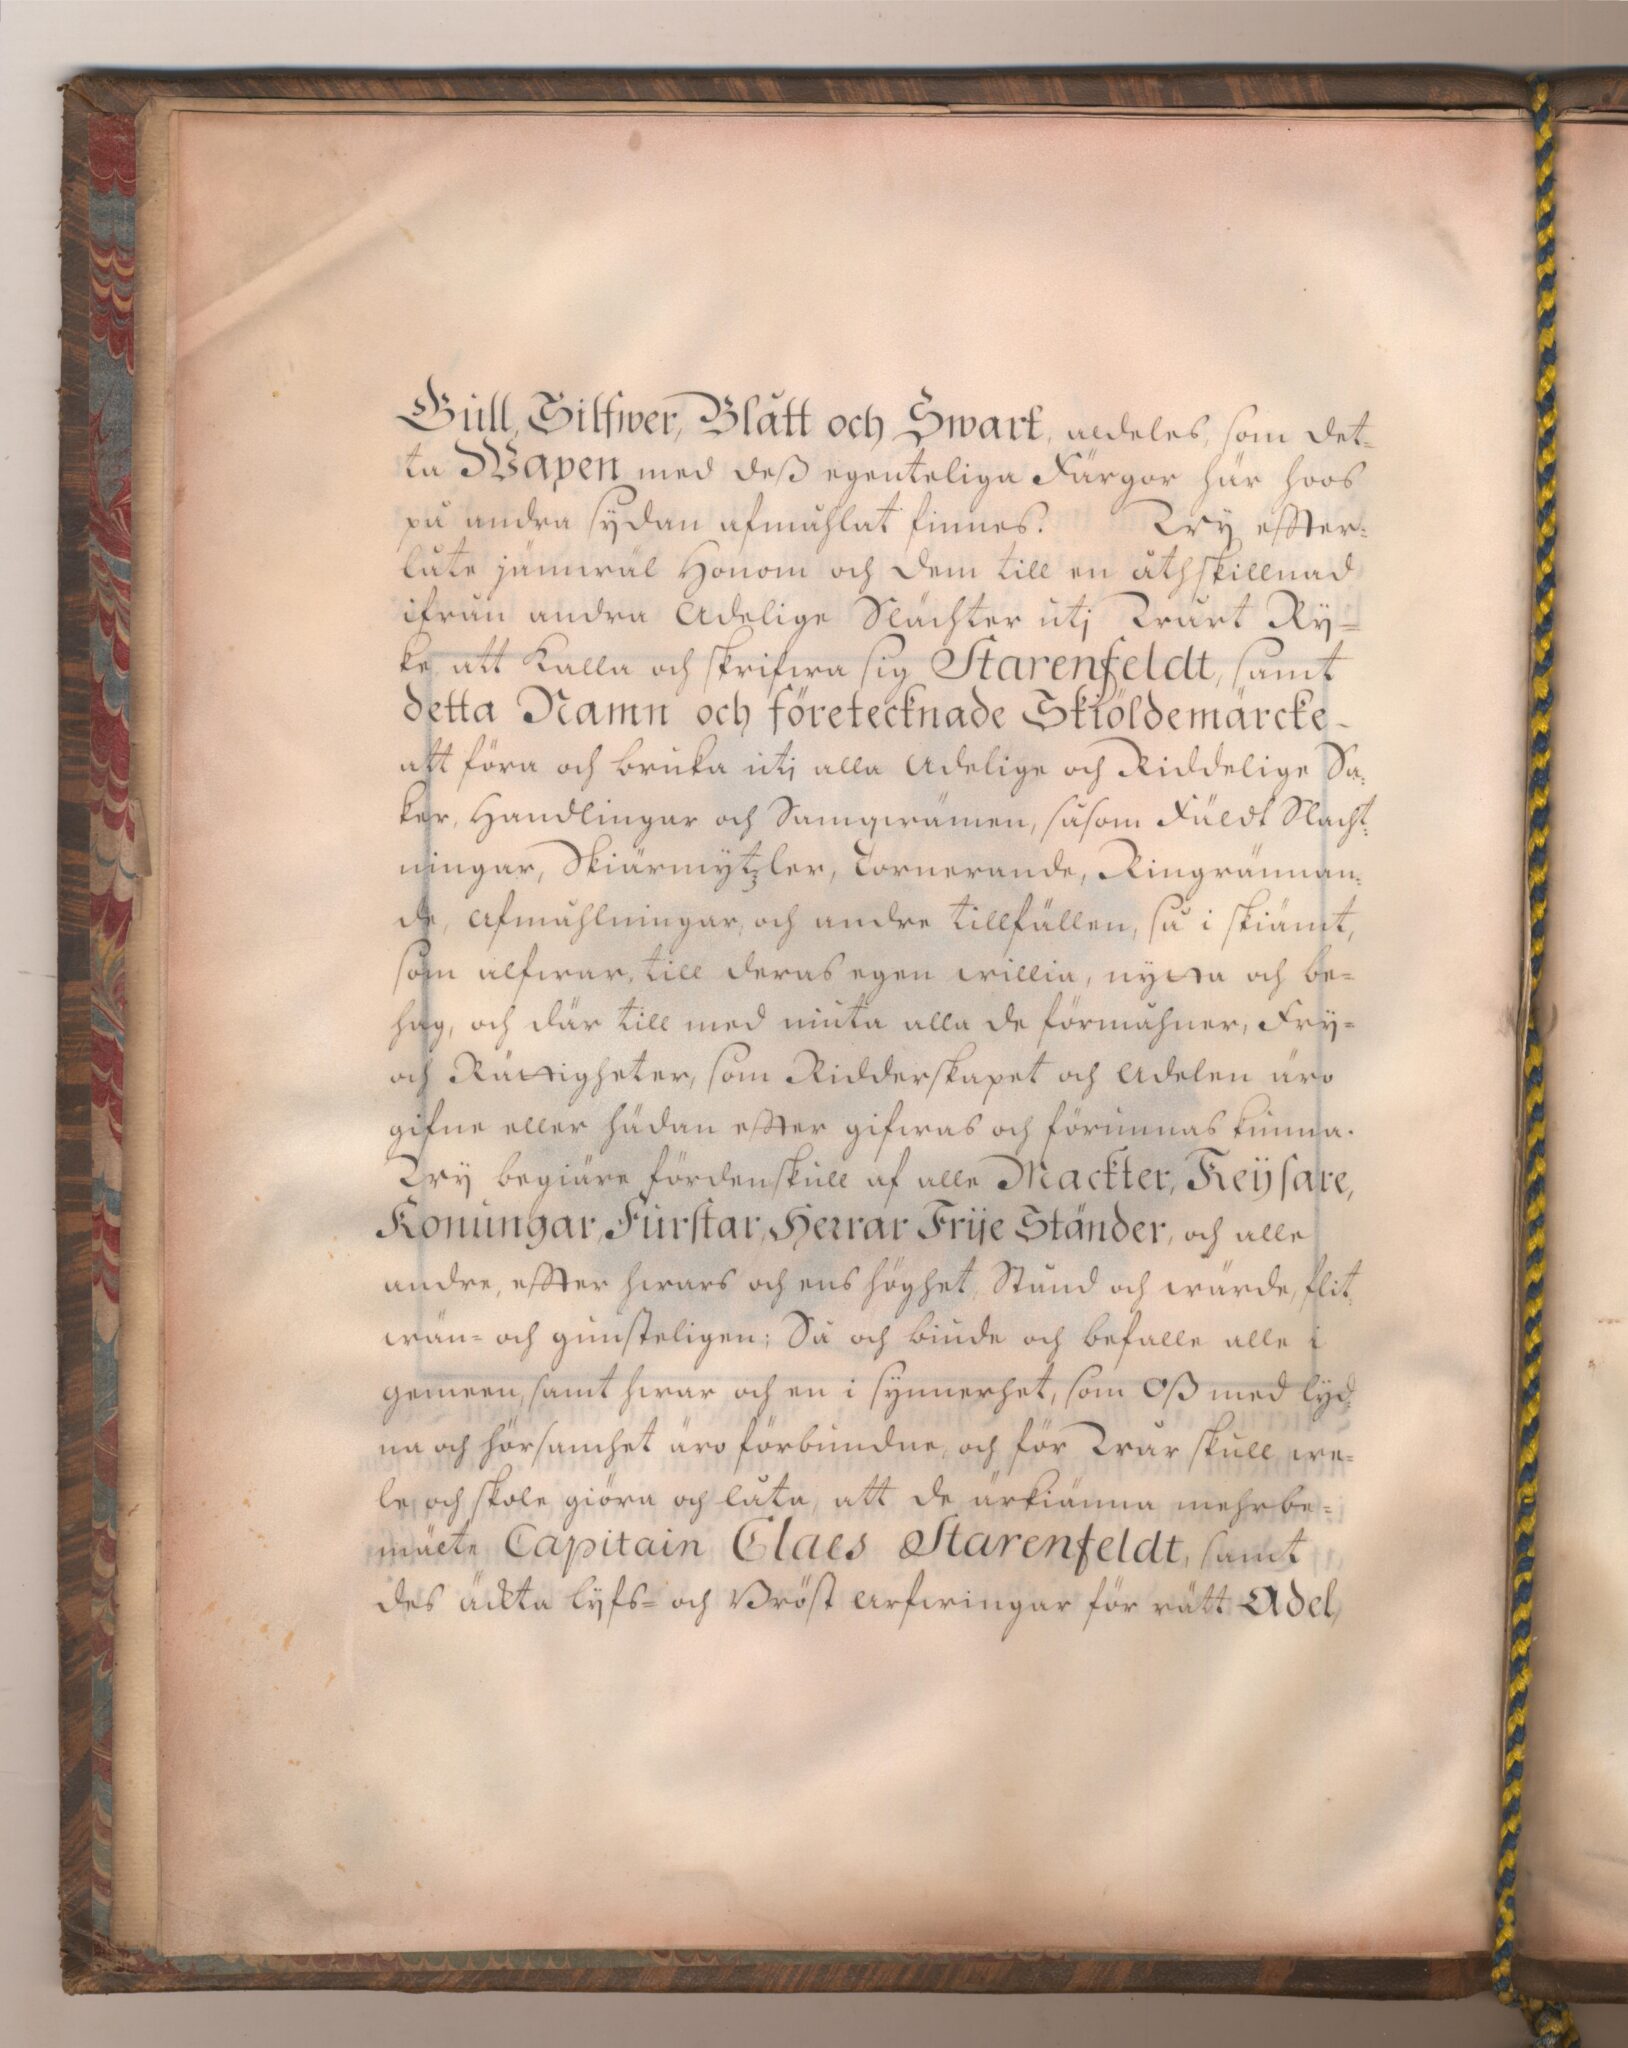 Gull, Silfwer, Blått och Swart, aldeles, som det-
ta Wapen med deß egenteliga Färgor här hoos
på andra sydan afmåhlat finnes. Wij effter-
låte jämwäl Honom och dem till en åthskillnad
ifrån andra Adelige Slächter utj Wårt Ry-
ke att kalla och skrifwa sig Starenfeldt, samt
detta Namn och företecknade Skiöldemärcke
att föra och bruka utj alla Adelige och Riddelige Sa-
ker, Handlingar och Samqwämen, såsom Fäldt Slacht-
ningar, Skiärmytzler, Tornerande, Ringrännan-
de, Afmåhlningar, och andre tillfällen, så i skiämt,
som alfwar, till deras egen willia, nytta och be-
hag, och där till med niuta alla de förmåhner, Fry-
och Rättigheter, som Ridderskapet och Adelen äro
gifne eller hädan effter gifwas och förunnas kunna.
Wij begiäre fördenskull af alle Mackter, Keysare,
Konungar, Furstar, Herrar Frije Ständer, och alle
andre, effter hwars och ens höghet, Stånd och wärde, flit-
wän- och gunsteligen; Så och biude och befalle alle i
gemeen, samt hwar och en i synnerhet, som Oß med lyd-
na och hörsamhet äro förbundne, och för Wår skull we-
le och skole giöra och låta, att de ärkiänna mehrbe-
mälte Capitain Claes Starenfeldt, samt
des ächta lyfs- och Bröst Arfwingar för rätt Adel,